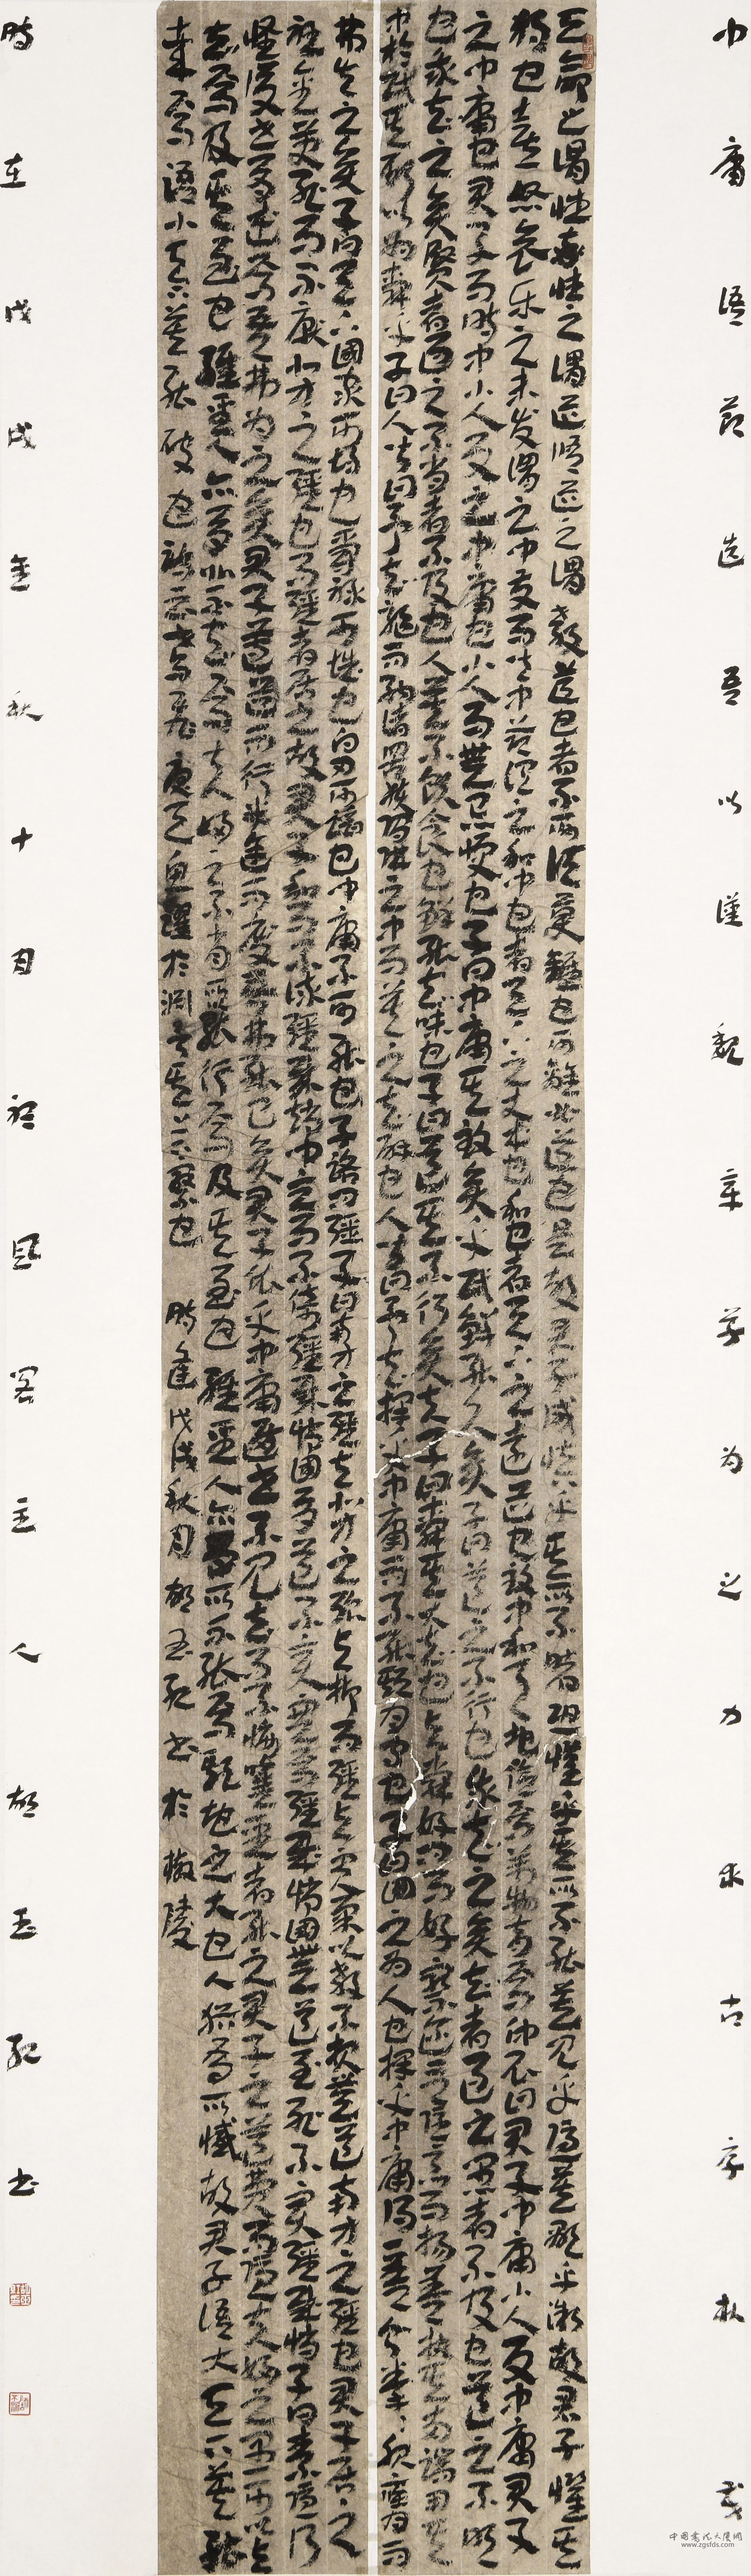 中庸語節选吾以漢魏章草为之力求古朴茂
天命之謂性率性之謂道脩道之謂教道也者不可須臾離也可離非道也是故君子戒慎乎其所不睹恐懼乎其所不聞莫見乎隱莫顯乎微故君子慎其
獨也喜怒哀乐之未发謂之中发而皆中節謂之和中也者天下之大本也和也者天下之達道也致中和天地位焉萬物育焉仲尼曰君子中庸小人反中庸君子
之中庸也君子而時中小人反之中庸也小人而無忌憚也子曰中庸其至矣乎民鮮能久矣子曰道之不行也我知之矣知者過之愚者不及也道之不明
也我知之矣賢者過之不肖者不及也人莫不飲食也鮮能知味也子曰道其不行矣夫子曰舜其大知也与舜好问而好察迩言隱惡而揚善执其兩端用其
中於民其斯以为舜乎子曰人皆曰予知驅而納諸罟擭陷阱之中而莫之知辟也人皆曰予知擇乎中庸而不能期月守也子曰回之为人也擇乎中庸得一善則拳拳服膺而
弗失之矣子曰天下國家可均也爵祿可辞也白刃可蹈也中庸不可能也子路问強子曰南方之強与北方之強与抑而強与寬柔以教不报無道南方之強也君子居之
衽金革死而不厭北方之強也而強者居之故君子和而不流強哉矯中立而不倚強哉矯國有道不变塞焉強哉矯國無道至死不变強哉矯子曰素隱行
怪後世有述焉吾弗为之矣君子遵道而行半途而廢吾弗能已矣君子依乎中庸遯世不見知而不悔唯聖者能之君子之道費而隱夫婦之愚可以与
知焉及其至也雖聖人亦有所不知焉夫婦之不肖可以能行焉及其至也雖聖人亦有所不能焉天地之大也人猶有所憾故君子語大天下莫能
載焉語小天下莫能破也詩云鳶飛戾天魚躍於淵言其上下察也 時逢戊戌秋月胡玉書於椒陵
時在戊戌金秋十月客主人胡玉書
中国书法大厦网
www.zgsfds.com